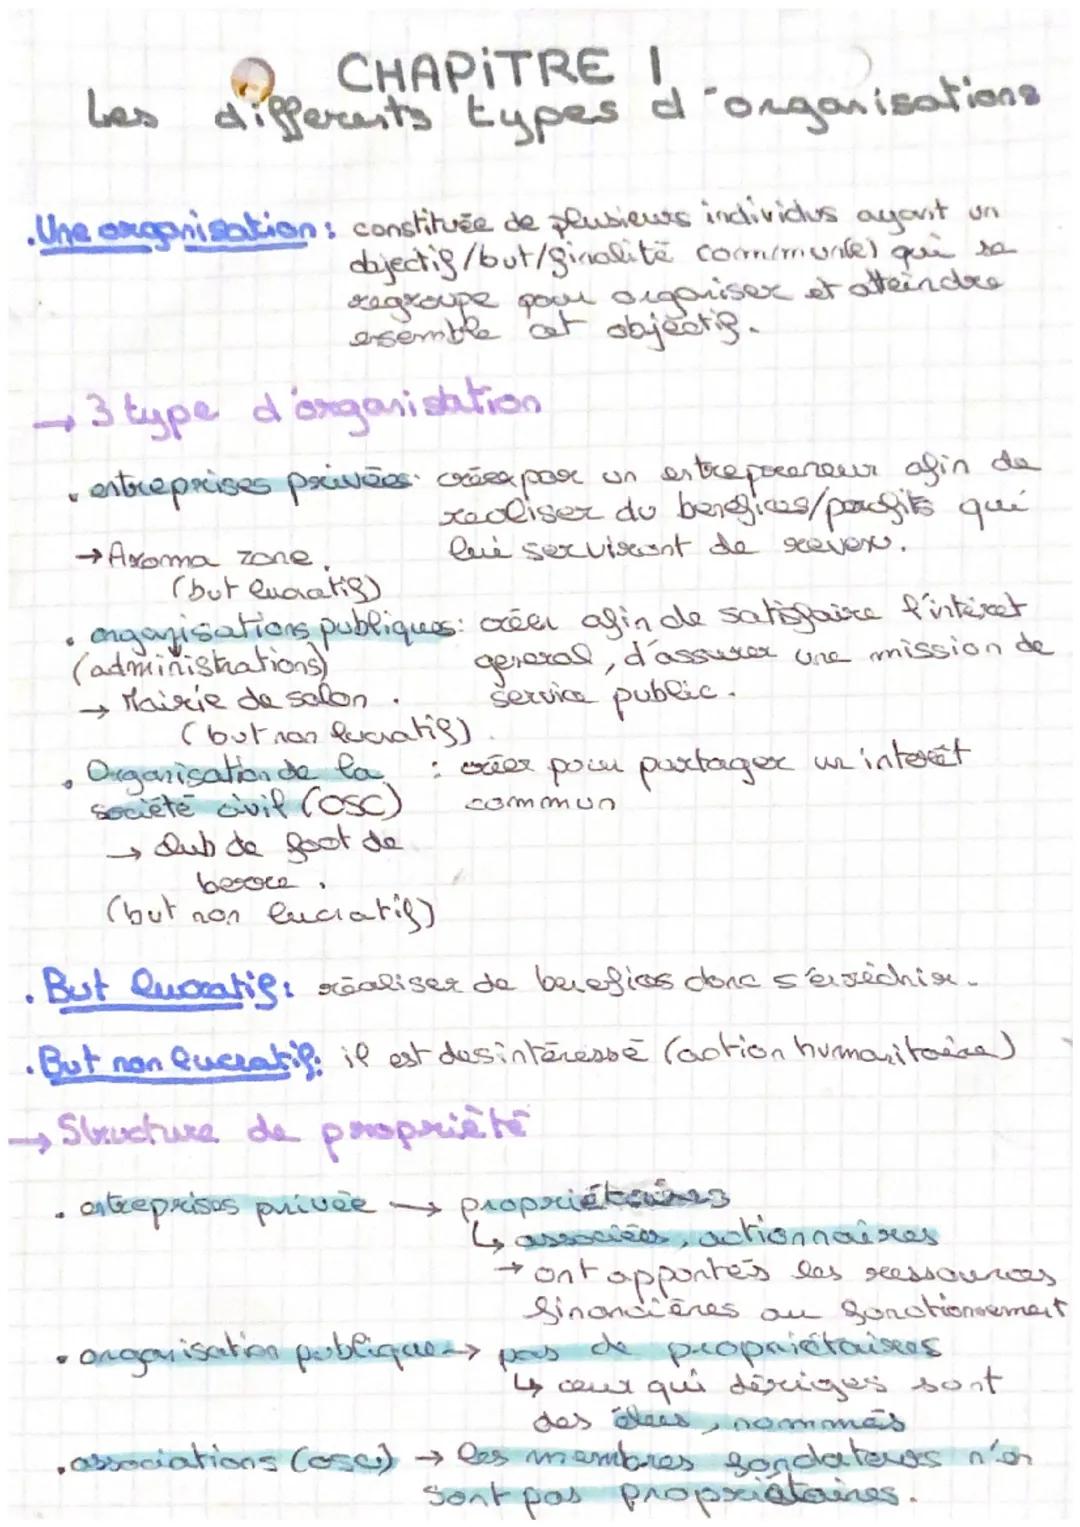 CHAPiTRE 1
Les differents types d'organisations
. Une organisation : constituée de plusieurs individus ayant un
objectif/but/finalité commun(e) qui se
regroupe pour organiser et atteindre
esemble cet objectif.
→ 3 type d'organisation
. entreprises privées : créer par un entrepreneur afin de
realiser du benefices/profits qui
lui serviront de revenu.
→ Aroma zone.
(but lucratif)
. organisations publiques : créer afin de satisfaire l'intéret
(administrations) general, d'assurer une mission de
→ Mairie de salon . service public.
(but non lucratif).
. Organisation de la : créer pour partager un interêt
société civil (OSC) commun
→ club de foot de
berre.
(but non lucratif)
. But lucratif : réaliser de benefices donc s'enrichir.
. But non lucratif : il est desintéressé (action humanitaire)
→ Structure de propriété
. entreprises privée → propriétaires
↳ associés, actionnaires
→ ont apportés les ressources
financières au fonctionnement
. organisation publique → pas de propriétaires
↳ ceux qui dériges sont
des élus, nommés
. associations (osc) → les membres fondateurs n'en
sont pas propriétaires.